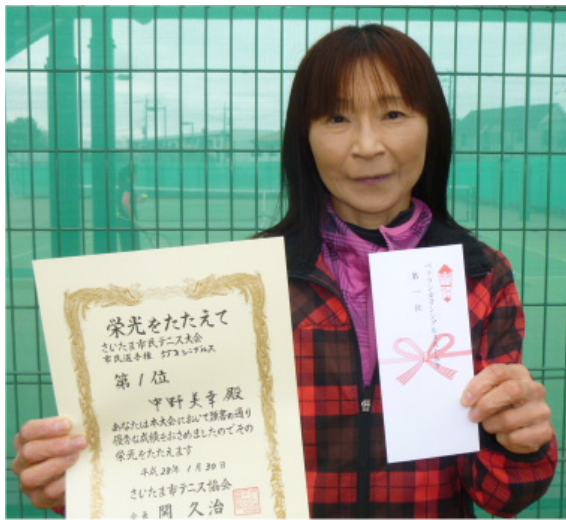 栄光をたたえて
さいたま市民テニス大会
市民選手権 55才シングルス
第1位
中野美幸 殿
あなたは本大会において頭書の通り
優秀な成績をおさめましたのでその
栄光をたたえます
平成28年 1月30日
さいたま市テニス協会
会長 関 久治
第一位